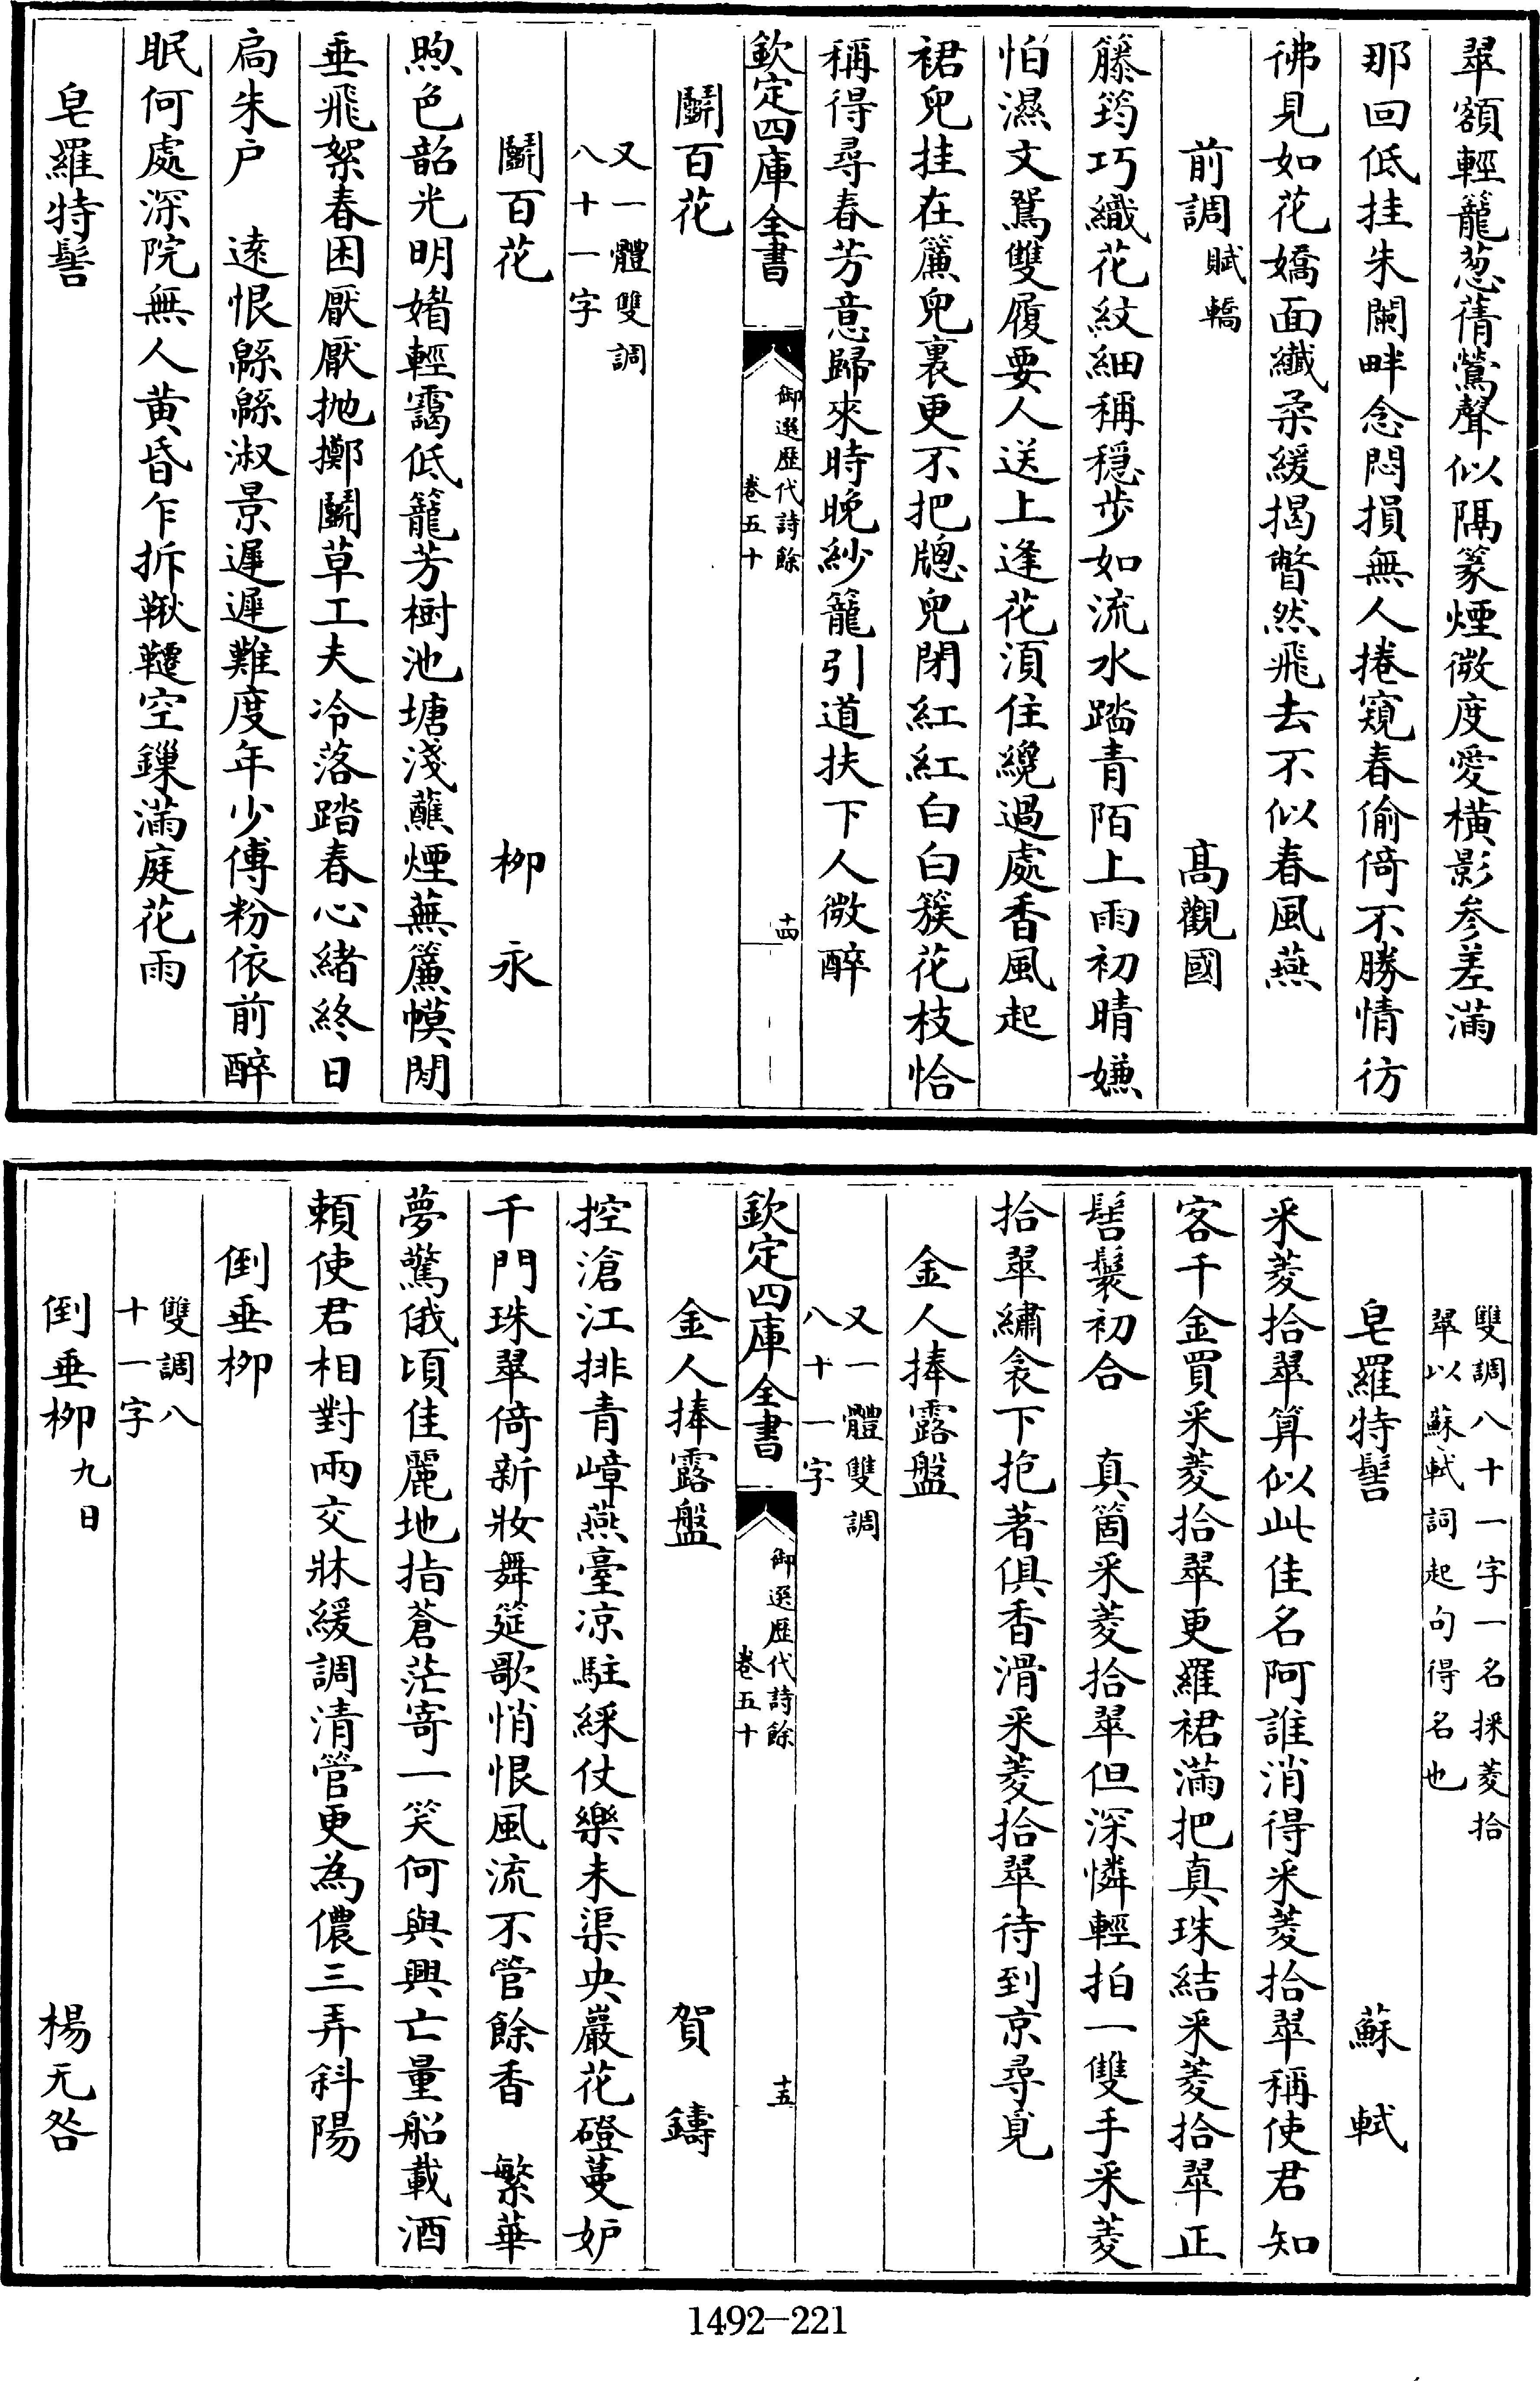 翠額輕籠葱蒨鶯聲似隔篆煙微度愛橫影參差滿
那回低挂朱闌畔念悶損無人捲窺春偷倚不勝情彷
彿見如花嬌面纖柔緩揭瞥然飛去不似春風燕
前調賦轎　高觀國
籐筠巧織花紋細稱穏步如流水踏青陌上雨初晴嫌
怕濕文鴛雙履要人送上逢花湏住纔過處香風起
裙兒挂在簾兒裏更不把牕兒閉紅紅白白簇花枝恰
稱得尋春芳意歸來時晚紗籠引道扶下人微醉
欽定四庫全書　御選歷代詩餘卷五十　十四
鬭百花
又一體雙調
八十一字
鬭百花　栁永
煦色韶光明媚輕靄低籠芳樹池塘淺蘸煙蕪簾幙閒
垂飛絮春困厭厭抛擲鬭草工夫冷落踏春心緒終日
扃朱戸　遠恨緜緜淑景遲遲難度年少傅粉依前醉
眠何處深院無人黄昏乍拆鞦韆空鏁滿庭花雨
皂羅特髻
雙調八十一字一名採菱拾
翠以蘇軾詞起句得名也
皂羅特髻　蘇軾
采菱拾翠算似此佳名阿誰消得采菱拾翠稱使君知
客千金買采菱拾翠更羅裙滿把真珠結采菱拾翠正
髻鬟初合　真箇采菱拾翠但深憐輕拍一雙手采菱
拾翠繡衾下抱著俱香滑采菱拾翠待到京尋覓
金人捧露盤
又一體雙調
八十一字
欽定四庫全書　御選歷代詩餘卷五十　十五
金人捧露盤　賀鑄
控滄江排青嶂燕臺凉駐綵仗樂未渠央巖花磴蔓妒
千門珠翠倚新妝舞筵歌悄恨風流不管餘香　繁華
夢驚俄頃佳麗地指蒼茫寄一笑何與興亡量船載酒
頼使君相對兩交牀緩調清管更為儂三弄斜陽
倒垂栁
雙調八
十一字
倒垂栁九日　楊无咎
1492-221